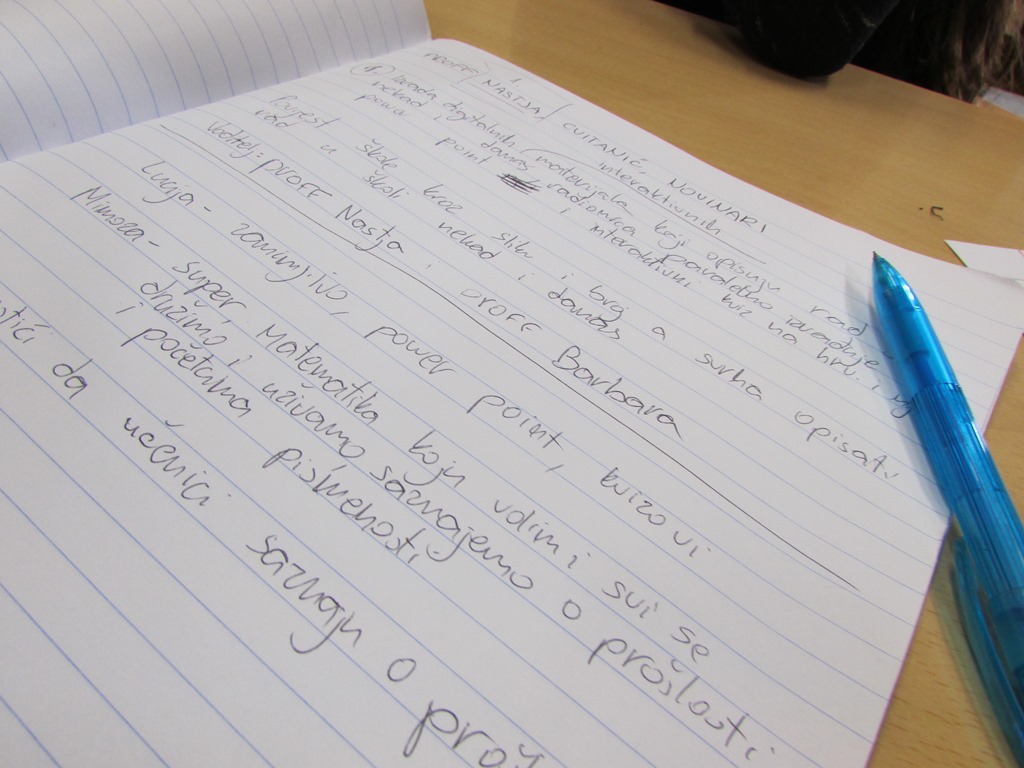 PROFF NASTJA CVITANIĆ NOVINARI
interaktivnih
Izrada digitalnih materijala koji opisuju rad
nekad i danas radionica paralelno izrađuje
power point i interaktivni kviz na hrv. i
Povijest škole kroz slik i broj a svrha opisati
rad u školi nekad i danas
Voditelj: proff Nastja i proff Barbara
Lucija - zanimljivo, power point, kvizovi
Mimoza - super, Matematika koju volim i svi se
družimo i uživamo saznajemo o prošlosti
i počecima pismenosti
da učenici saznaju o proš